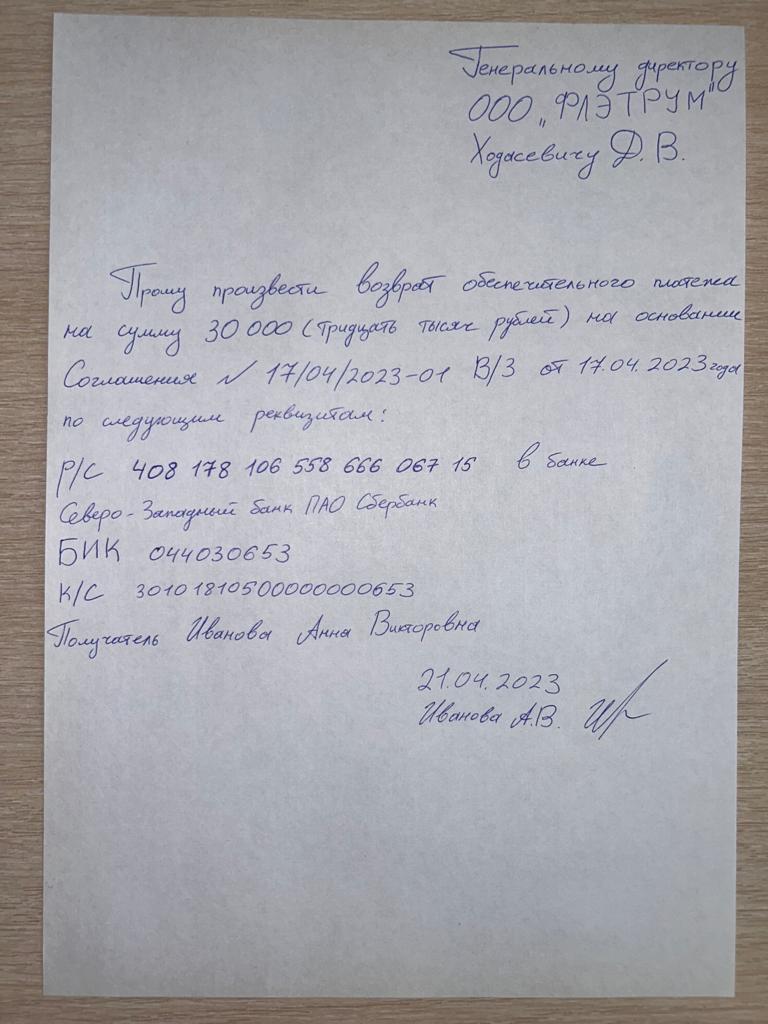 Генеральному директору
ООО „ФЛЭТРУМ"
Ходасевичу Д.В.
Прошу произвести возврат обеспечительного платежа
на сумму 30 000 (тридцать тысяч рублей) на основании
Соглашения № 17/04/2023-01 В/З от 17.04.2023 года
по следующим реквизитам:
Р/С 408 178 106 558 666 067 15 в банке
Северо-Западный банк ПАО Сбербанк
БИК 044030653
К/С 30101810500000000653
Получатель Иванова Анна Викторовна
21.04.2023
Иванова А.В.